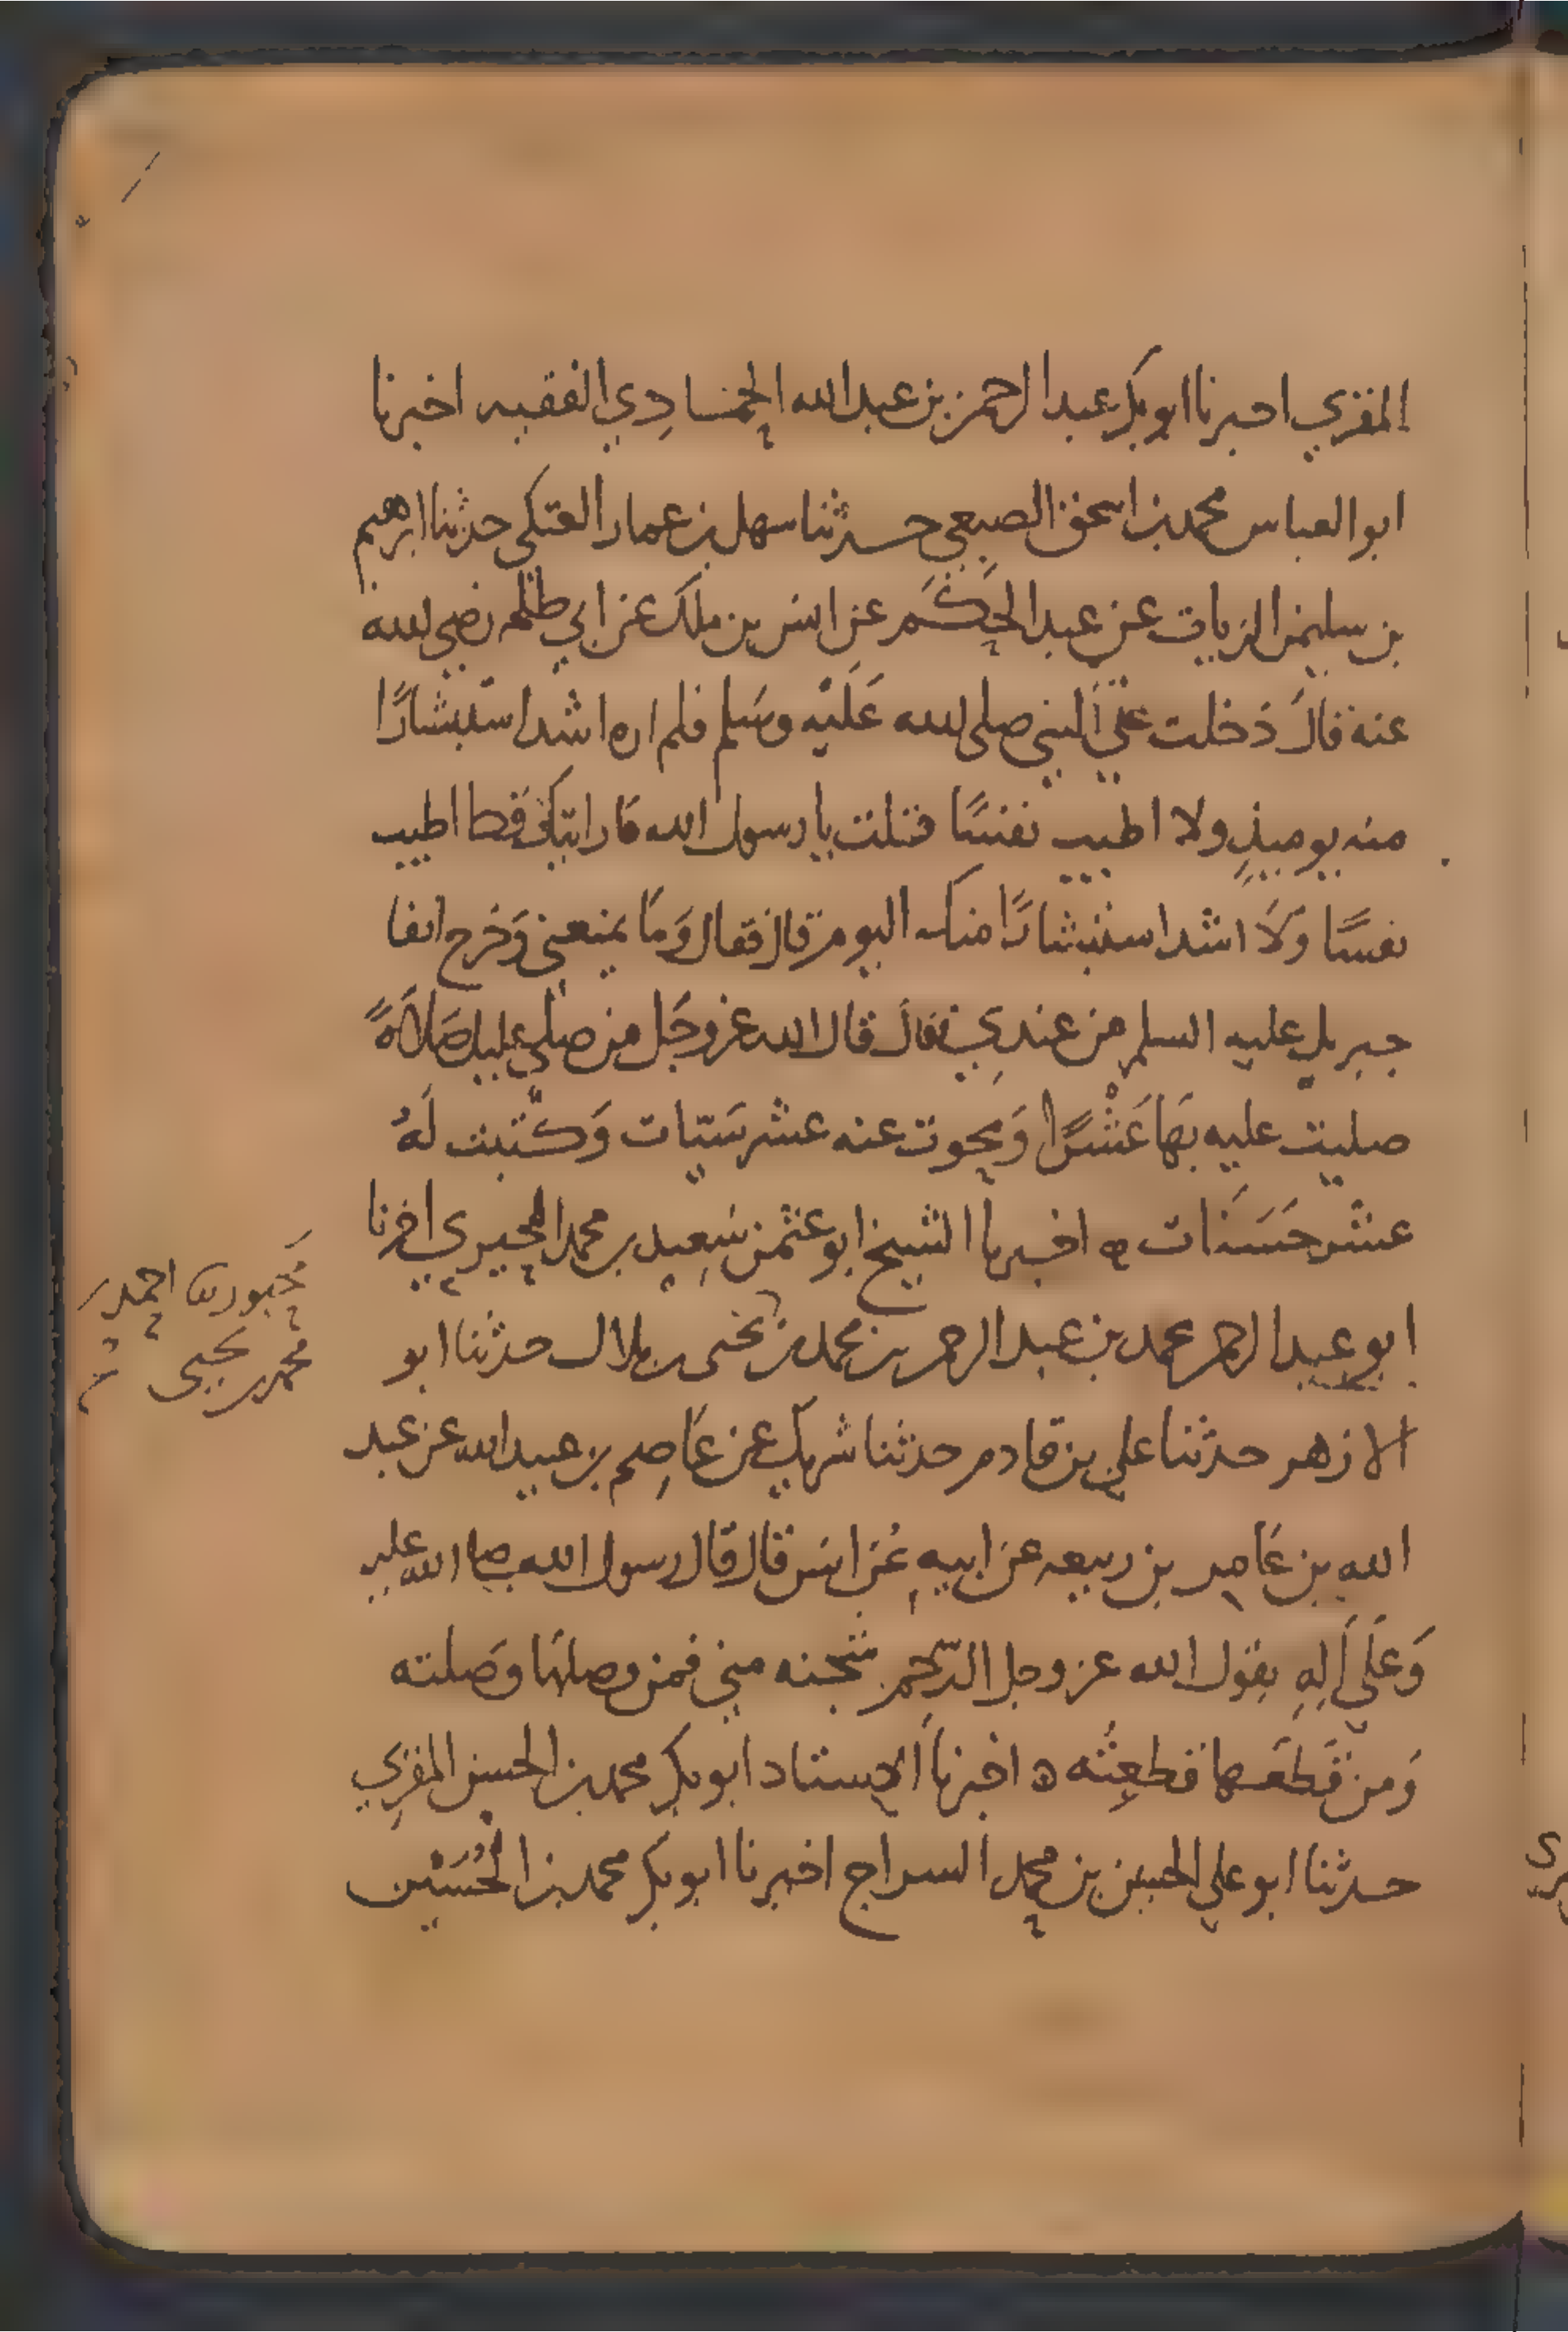 المقري اخبرنا ابو بكر عبد الرحمن بن عبد الله الحمشادي الفقيه اخبرنا
ابو العباس محمد بن اسحق الصبغي حدثنا سهل بن عمار العتكي حدثنا ابرهيم
بن سليمن الزيات عن عبد الحكم عن انس بن ملك عن ابي طلحه رضي الله
عنه قال دخلت علي النبي صلى الله عليه وسلم فلم اره اشد استبشارًا
منه يوميذٍ ولا اطيب نفسًا فقلت يا رسول الله ما رايتك قط اطيب
نفسًا ولا اشد استبشارًا منك اليوم قال فقال وما يمنعني وخرج انفا
جبريل عليه السلم من عندي فقال قال الله عز وجل من صلي عليك صلاةً
صليت عليه بها عشرًا ومحوت عنه عشر سيّات وكتبت له
عشر حسنات ه اخبرنا الشيخ ابو عثمن سعيد بن محمد الحيري اخبرنا
ابو عبد الرحمن محمد بن عبد الرحمن بن محمد بن يحيى بن بلال حدثنا ابو
الازهر حدثنا علي بن قادم حدثنا شريك عن عاصم بن عبيد الله عن عبد
الله بن عامر بن ربيعه عن ابيه عن انس قال قال رسول الله صلى الله عليه
وعلي اله يقول الله عز وجل الرحم شجنه مني فمن وصلها وصلته
ومن قطعها قطعته ه اخبرنا الاستاد ابو بكر محمد بن الحسن المقري
حدثنا ابو علي الحسن بن محمد السراج اخبرنا ابو بكر محمد بن الحسين
احمد بن
محمد بن يحيى